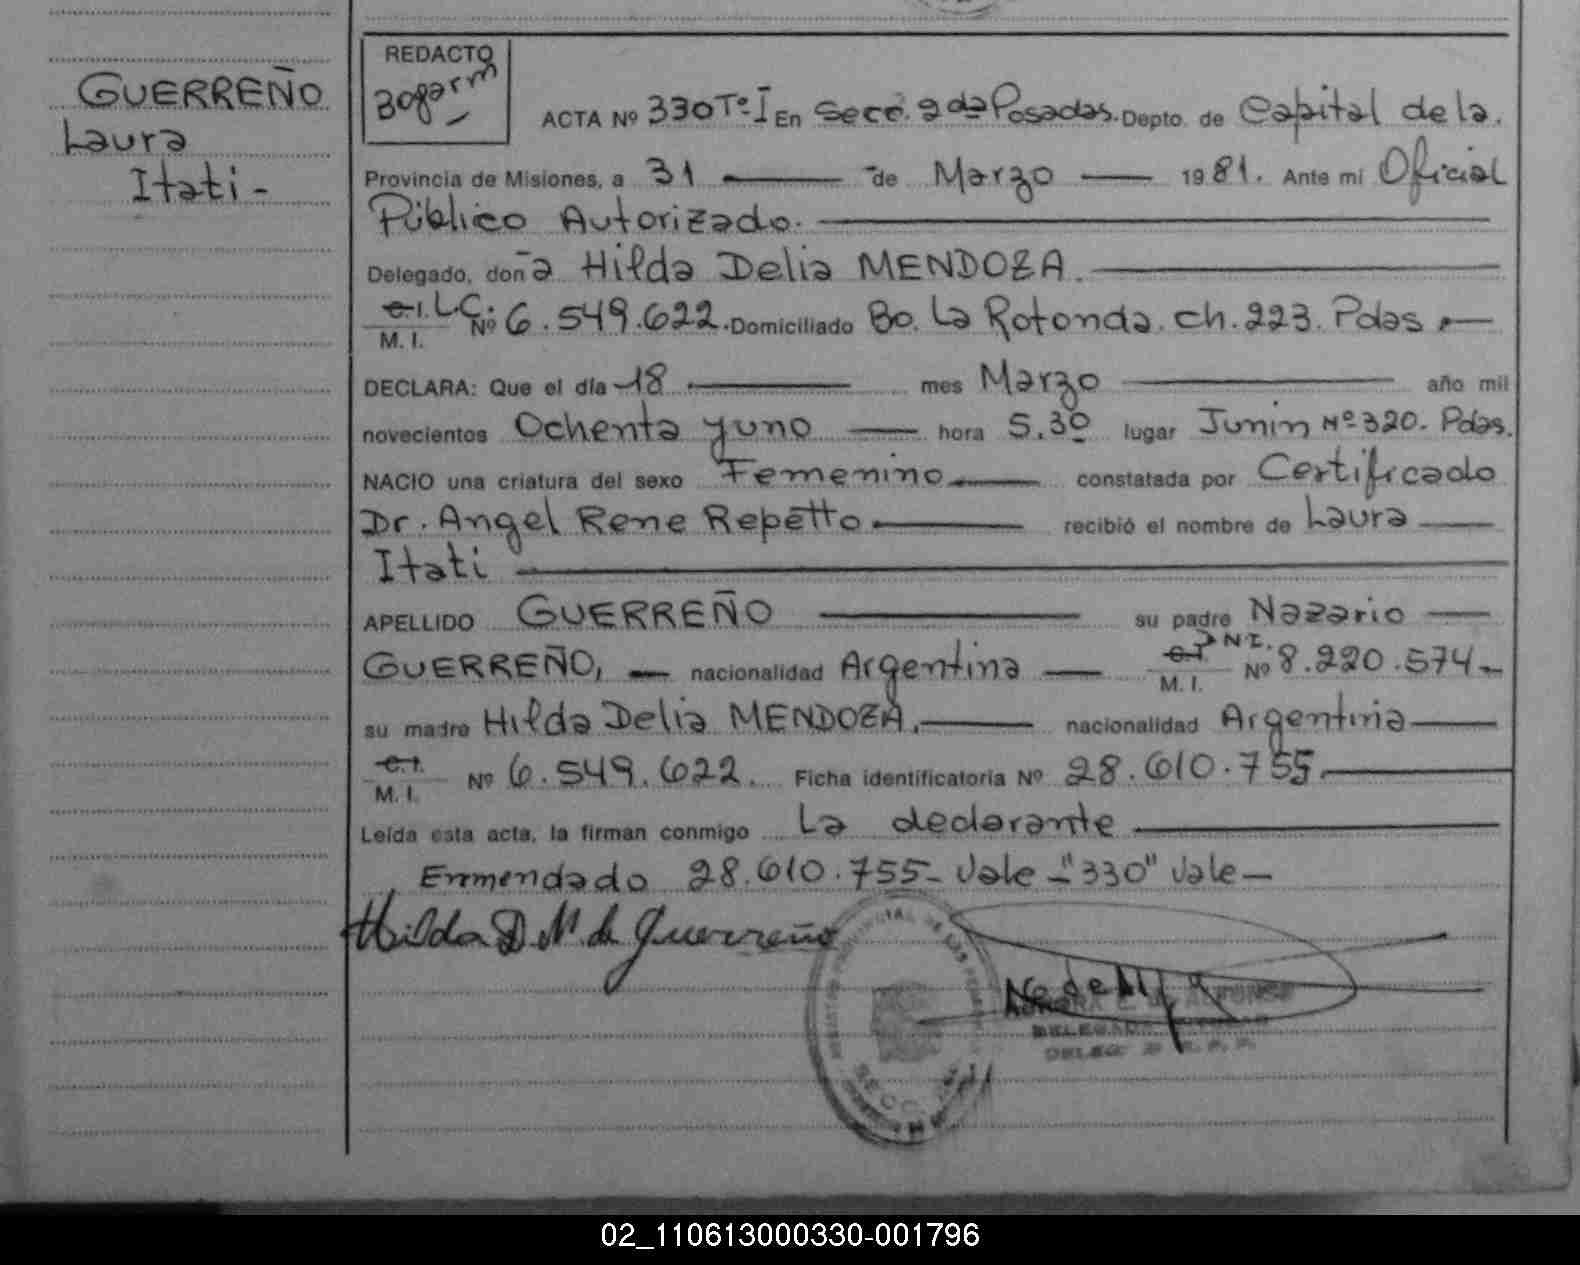 GUERREÑO
Laura
Itati -
REDACTO
ACTA Nº 330 Tº I En Secc. 2da Posadas. Depto. de Capital de la.
Provincia de Misiones, a 31 — de Marzo — 1981. Ante mi Oficial
Público Autorizado.
Delegado, doña Hilda Delia MENDOZA.
C.I. L.C. Nº 6.549.622. Domiciliado Bo. La Rotonda. Ch. 223. Pdas.
M. I.
DECLARA: Que el día 18 — mes Marzo — año mil
novecientos Ochenta y uno — hora 5.30 lugar Junin Nº 320. Pdas.
NACIO una criatura del sexo Femenino — constatada por Certificado
Dr. Angel Rene Repetto — recibió el nombre de Laura
Itati
APELLIDO GUERREÑO — su padre Nazario
GUERREÑO, — nacionalidad Argentina — C.I. D.N.I. Nº 8.220.574
M. I.
su madre Hilda Delia MENDOZA. — nacionalidad Argentina
C.I. Nº 6.549.622. Ficha identificatoria Nº 28.610.755.
M. I.
Leída esta acta, la firman conmigo La declarante
Enmendado 28.610.755- Vale - "330" Vale -
Hilda D. M. de Guerreño
02_110613000330-001796